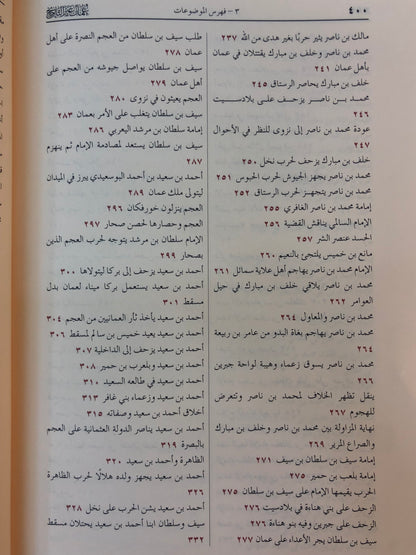 ٤٠٠
٣ - فهرس الموضوعات
مالك بن ناصر يثير حربًا بغير هدى من الله ٢٣٧
محمد بن ناصر وخلف بن مبارك يقتتلان في عمان
بأهل عمان ٢٤١
خلف بن مبارك يحاصر الرستاق ٢٤٥
محمد بن ناصر يزحف على بلادسيت
٢٤٦
عودة محمد بن ناصر إلى نزوى للنظر في الأحوال
٢٤٧
خلف بن مبارك يزحف لحرب نخل ٢٥٠
محمد بن ناصر يجهز الجيوش لحرب الحبوس ٢٥١
محمد بن ناصر يتجهز لحرب الرستاق ٢٥٢
إمامة محمد بن ناصر الغافري ٢٥٥
الإمام السالمي يناقش القضية ٢٥٦
الحسد عنصر الشر ٢٥٧
مانع بن خميس يلتجئ بالنعيم ٢٦٠
الإمام محمد بن ناصر يهاجم أهل علاية سمائل ٢٦١
محمد بن ناصر يلاقي خلف بن مبارك في جبل
العوامر ٢٦٢
محمد بن ناصر والمعاول ٢٦٤
محمد بن ناصر يهاجم بغاة البدو من عامر بن ربيعة
٢٦٤
محمد بن ناصر يسوق زعماء وهيبة لواحة جبرين
٢٦٦
ينقل تظهر الخلاف لمحمد بن ناصر وتتعرض
للهجوم ٢٦٧
نهاية المزاولة بين محمد بن ناصر وخلف بن مبارك
والصراع المرير ٢٦٩
إمامة سيف بن سلطان بن سيف ٢٧١
إمامة بلعرب بن حمير ٢٧٥
الحرب يقيمها الإمام على سيف بن سلطان ٢٧٥
الزحف على بني هناءة في بلادسيت ٢٧٦
الزحف على جبرين وفيه بنو هناءة ٢٧٦
سيف بن سلطان يجر الأعداء على عمان ٢٧٧
طلب سيف بن سلطان من العجم النصرة على أهل
عمان ٢٧٨
سيف بن سلطان يواصل جيوشه من العجم على
أهل عمان ٢٧٩
العجم يعيثون في نزوى ٢٨٠
سيف بن سلطان يتغلب على الأمر بعمان ٢٨٣
إمامة سلطان بن مرشد اليعربي ٢٨٦
سيف بن سلطان يستعد لمصادمة الإمام ثم ينهزم
٢٨٧
أحمد بن سعيد بن أحمد البوسعيدي يبرز في الميدان
ليتولى ملك عمان ٢٨٩
العجم ينزلون خورفكان ٢٩٦
العجم وحصارها لحصن صحار ٢٩٧
الإمام سلطان بن مرشد يتوجه لحرب العجم الذين
بصحار ٢٩٩
أحمد بن سعيد يزحف إلى بركا ليتولاها ٣٠٠
أحمد بن سعيد يستعمل بركا ميناء لعمان بدل
مسقط ٣٠١
أحمد بن سعيد يأخذ ثأر العمانيين من العجم ٣٠٤
أحمد بن سعيد يعيد خميس بن سالم لمسقط ٣٠٦
أحمد بن سعيد يزحف إلى الداخلية ٣٠٧
أحمد بن سعيد وبلعرب بن حمير ٣٠٨
أحمد بن سعيد في طالعه السعيد ٣١٠
أحمد بن سعيد وزعماء بني غافر ٣١٣
أخلاق أحمد بن سعيد وصفاته ٣١٥
أحمد بن سعيد يناصر الدولة العثمانية على العجم
بالبصرة ٣١٩
الظاهرة وأحمد بن سعيد ٣٢٠
أحمد بن سعيد يجهز ولده هلالًا لحرب الظاهرة
٣٢٦
أحمد بن سعيد يشن الحرب على نخل ٣٢٨
سيف وسلطان ابنا أحمد بن سعيد يحتلان مسقط
٣٣٢